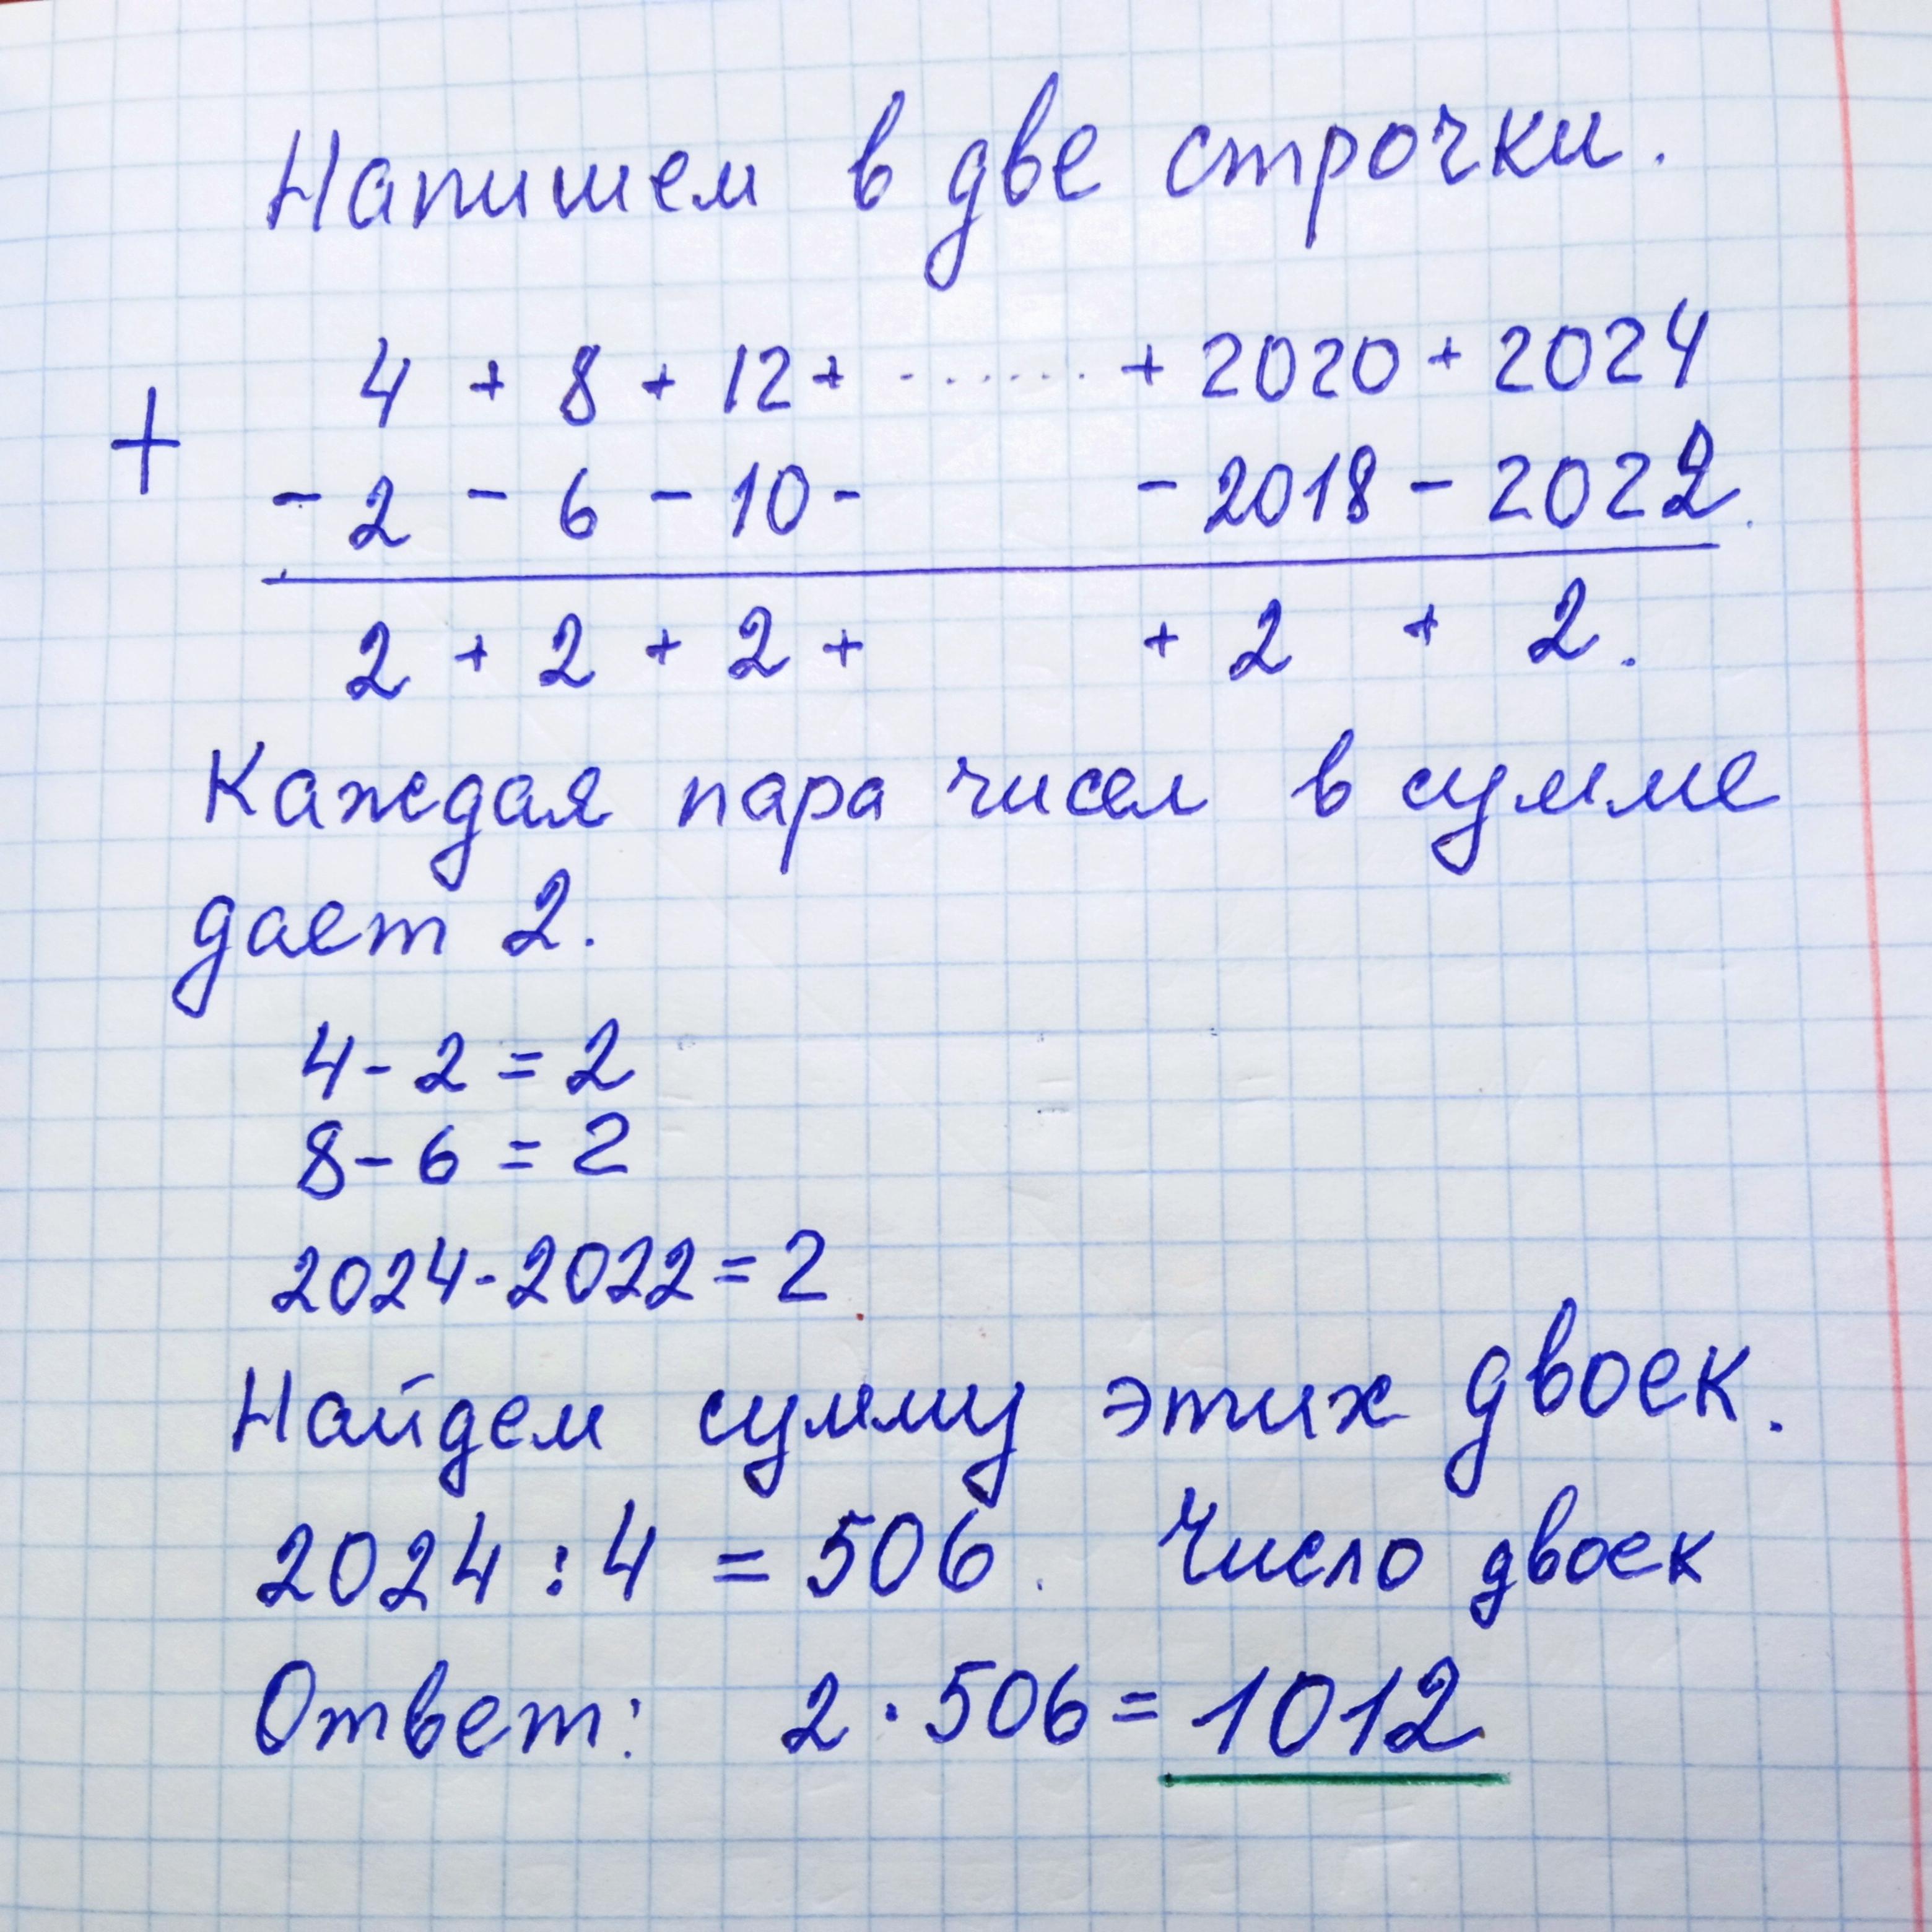 Напишем в две строчки.
4 + 8 + 12 + ....... + 2020 + 2024
+
- 2 - 6 - 10 - - 2018 - 2022.
2 + 2 + 2 + + 2 + 2.
Каждая пара чисел в сумме
дает 2.
4 - 2 = 2
8 - 6 = 2
2024 - 2022 = 2
Найдем сумму этих двоек.
2024 : 4 = 506. Число двоек
Ответ: 2 · 506 = 1012